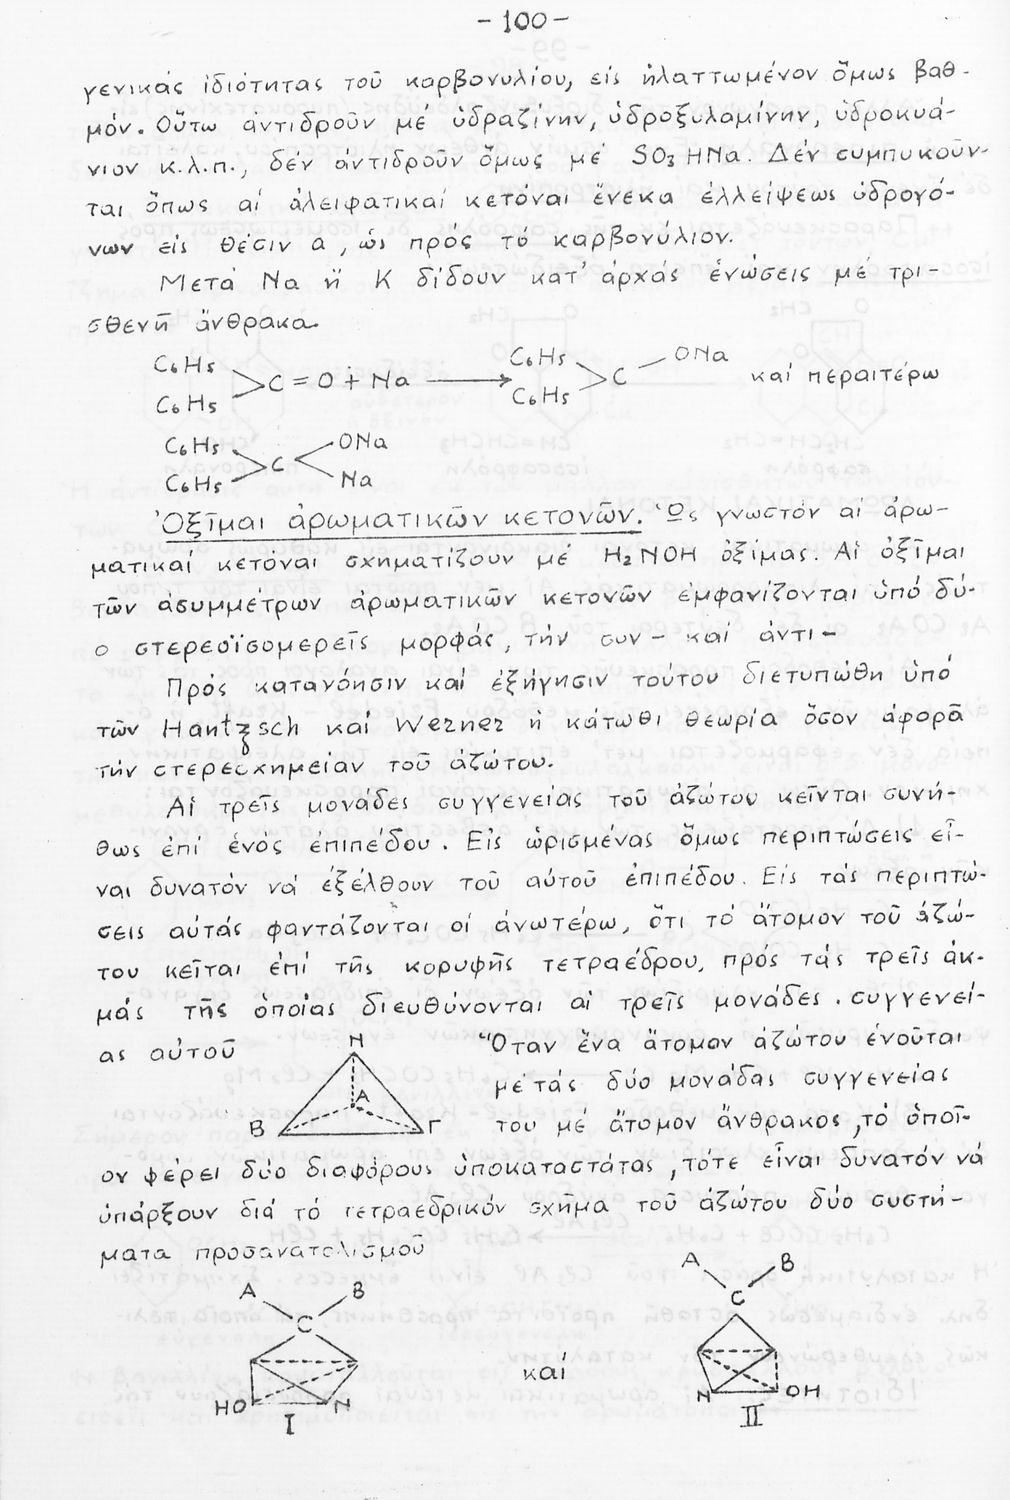 - 100 -
γενικάς ἰδιότητας τοῦ καρβονυλίου, εἰς ἠλαττωμένον ὅμως βαθ-
μόν. Οὕτω ἀντιδροῦν μέ ὑδραζίνην, ὑδροξυλαμίνην, ὑδροκυά-
νιον κ.λ.π., δέν ἀντιδροῦν ὅμως μέ SO₃HNa. Δέν συμπυκοῦν-
ται ὅπως αἱ ἀλειφατικαί κετόναι ἕνεκα ἐλλείψεως ὑδρογό-
νων εἰς θέσιν α, ὡς πρός τό καρβονύλιον.
Μετά Na ἤ K δίδουν κατ' ἀρχάς ἑνώσεις μέ τρι-
σθενῆ ἄνθρακα.
C₆H₅ C₆H₅ ONa
C = O + Na ⟶ C καί περαιτέρω
C₆H₅ C₆H₅
C₆H₅ ONa
C
C₆H₅ Na
Ὀξῖμαι ἀρωματικῶν κετονῶν. Ὡς γνωστόν αἱ ἀρω-
ματικαί κετόναι σχηματίζουν μέ H₂NOH ὀξίμας. Αἱ ὀξῖμαι
τῶν ἀσυμμέτρων ἀρωματικῶν κετονῶν ἐμφανίζονται ὑπό δύ-
ο στερεοϊσομερεῖς μορφάς, τήν συν- καί ἀντι-
Πρός κατανόησιν καί ἐξήγησιν τούτου διετυπώθη ὑπό
τῶν Hantzsch καί Werner ἡ κάτωθι θεωρία ὅσον ἀφορᾶ
τήν στερεοχημείαν τοῦ ἀζώτου.
Αἱ τρεῖς μονάδες συγγενείας τοῦ ἀζώτου κεῖνται συνή-
θως ἐπί ἑνός ἐπιπέδου. Εἰς ὡρισμένας ὅμως περιπτώσεις εἶ-
ναι δυνατόν νά ἐξέλθουν τοῦ αὐτοῦ ἐπιπέδου. Εἰς τάς περιπτώ-
σεις αὐτάς φαντάζονται οἱ ἀνωτέρω, ὅτι τό ἄτομον τοῦ ἀζώ-
του κεῖται ἐπί τῆς κορυφῆς τετραέδρου, πρός τάς τρεῖς ἀκ-
μάς τῆς ὁποίας διευθύνονται αἱ τρεῖς μονάδες συγγενεί-
ας αὐτοῦ
N
A
B Γ
Ὅταν ἕνα ἄτομον ἀζώτου ἑνοῦται
μέ τάς δύο μονάδας συγγενείας
του μέ ἄτομον ἄνθρακος, τό ὁποῖ-
ον φέρει δύο διαφόρους ὑποκαταστάτας, τότε εἶναι δυνατόν νά
ὑπάρξουν διά τό τετραεδρικόν σχῆμα τοῦ ἀζώτου δύο συστή-
ματα προσανατολισμοῦ
A B
C
HO N
I
καί
A B
C
N OH
II